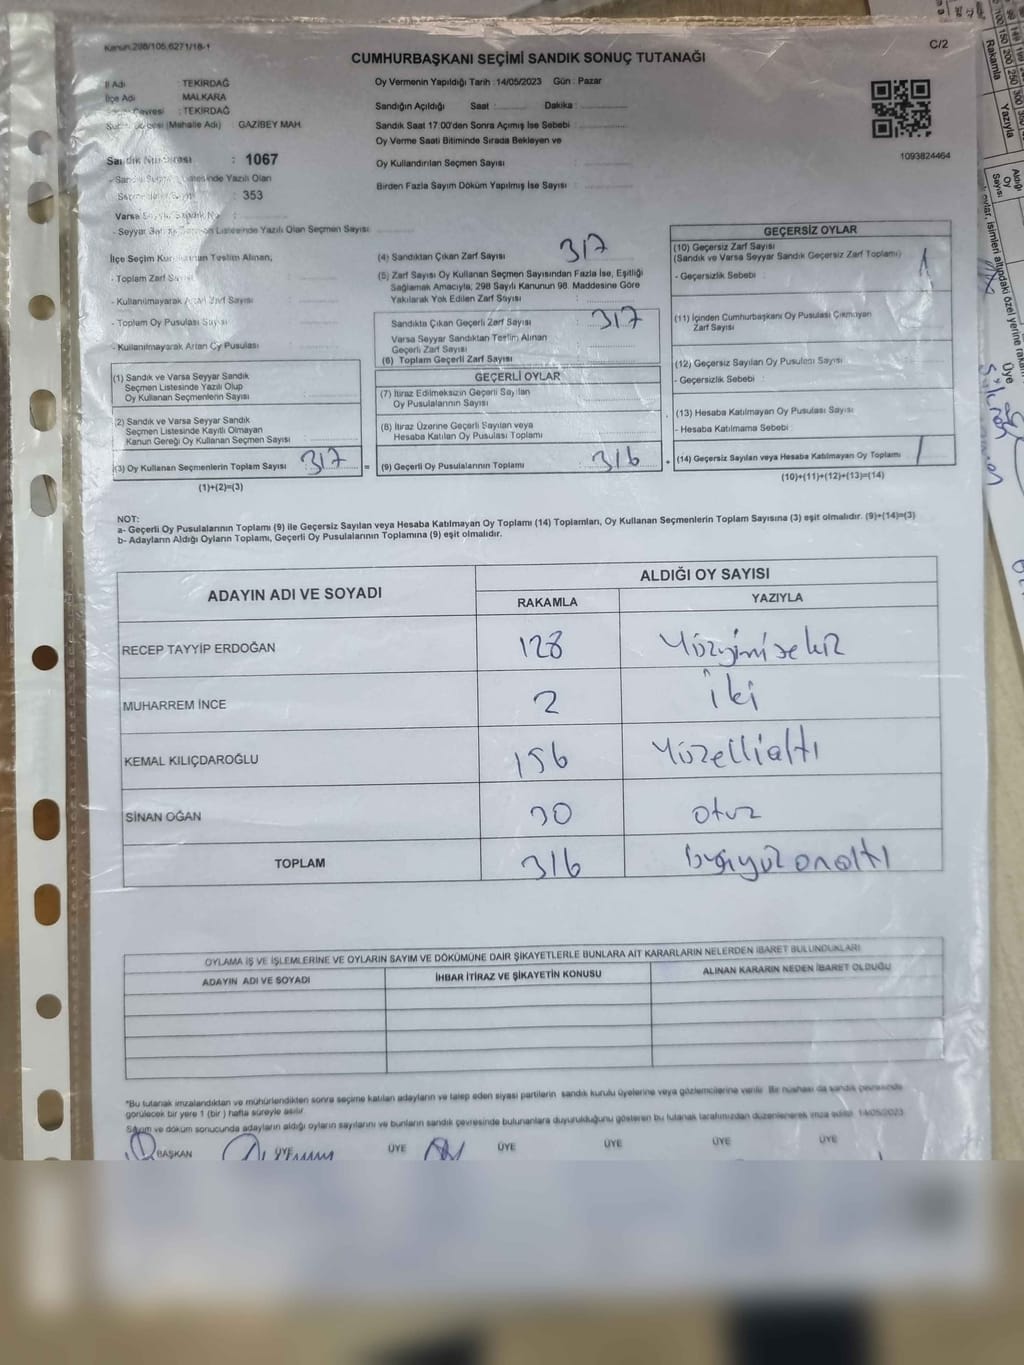 Kanun:298/105,6271/18-1
C/2
CUMHURBAŞKANI SEÇİMİ SANDIK SONUÇ TUTANAĞI
İl Adı : TEKİRDAĞ
İlçe Adı : MALKARA
Çevresi : TEKİRDAĞ
(Mahalle Adı) : GAZİBEY MAH.
Sandık Numarası : 1067
- Sandık Seçmen Listesinde Yazılı Olan
Seçmen Sayısı : 353
Varsa Seyyar Sandık No
- Seyyar Listesinde Yazılı Olan Seçmen Sayısı
Oy Vermenin Yapıldığı Tarih :14/05/2023 Gün : Pazar
Sandığın Açıldığı Saat : Dakika :
Sandık Saat 17:00'den Sonra Açımış İse Sebebi :
Oy Verme Saati Bitiminde Sırada Bekleyen ve
Oy Kullandırılan Seçmen Sayısı :
Birden Fazla Sayım Döküm Yapılmış İse Sayısı :
1093824464
İlçe Seçim Kurulundan Teslim Alınan,
- Toplam Zarf Sayısı
- Kullanılmayarak Artan Zarf Sayısı
- Toplam Oy Pusulası Sayısı
- Kullanılmayarak Artan Oy Pusulası
(1) Sandık ve Varsa Seyyar Sandık
Seçmen Listesinde Yazılı Olup
Oy Kullanan Seçmenlerin Sayısı
(2) Sandık ve Varsa Seyyar Sandık
Seçmen Listesinde Kayıtlı Olmayan
Kanun Gereği Oy Kullanan Seçmen Sayısı
(3) Oy Kullanan Seçmenlerin Toplam Sayısı 317
(1)+(2)=(3)
(4) Sandıktan Çıkan Zarf Sayısı 317
(5) Zarf Sayısı Oy Kullanan Seçmen Sayısından Fazla İse, Eşitliği
Sağlamak Amacıyla; 298 Sayılı Kanunun 98. Maddesine Göre
Yakılarak Yok Edilen Zarf Sayısı :
Sandıkta Çıkan Geçerli Zarf Sayısı : 317
Varsa Seyyar Sandıktan Teslim Alınan
Geçerli Zarf Sayısı
(6) Toplam Geçerli Zarf Sayısı
GEÇERLİ OYLAR
(7) İtiraz Edilmeksizin Geçerli Sayılan
Oy Pusulalarının Sayısı
(8) İtiraz Üzerine Geçerli Sayılan veya
Hesaba Katılan Oy Pusulası Toplamı
= (9) Geçerli Oy Pusulalarının Toplamı 316
GEÇERSİZ OYLAR
(10) Geçersiz Zarf Sayısı
(Sandık ve Varsa Seyyar Sandık Geçersiz Zarf Toplamı) 1
- Geçersizlik Sebebi :
(11) İçinden Cumhurbaşkanı Oy Pusulası Çıkmayan
Zarf Sayısı
(12) Geçersiz Sayılan Oy Pusulası Sayısı
- Geçersizlik Sebebi :
(13) Hesaba Katılmayan Oy Pusulası Sayısı
- Hesaba Katılmama Sebebi :
+ (14) Geçersiz Sayılan veya Hesaba Katılmayan Oy Toplamı 1
(10)+(11)+(12)+(13)=(14)
NOT:
a- Geçerli Oy Pusulalarının Toplamı (9) ile Geçersiz Sayılan veya Hesaba Katılmayan Oy Toplamı (14) Toplamları, Oy Kullanan Seçmenlerin Toplam Sayısına (3) eşit olmalıdır. (9)+(14)=(3)
b- Adayların Aldığı Oyların Toplamı, Geçerli Oy Pusulalarının Toplamına (9) eşit olmalıdır.
ADAYIN ADI VE SOYADI
ALDIĞI OY SAYISI
RAKAMLA YAZIYLA
RECEP TAYYİP ERDOĞAN 128 Yüzyirmisekiz
MUHARREM İNCE 2 iki
KEMAL KILIÇDAROĞLU 156 Yüzellialtı
SİNAN OĞAN 30 otuz
TOPLAM 316 üçyüzonaltı
OYLAMA İŞ VE İŞLEMLERİNE VE OYLARIN SAYIM VE DÖKÜMÜNE DAİR ŞİKAYETLERLE BUNLARA AİT KARARLARIN NELERDEN İBARET BULUNDUKLARI
ADAYIN ADI VE SOYADI İHBAR İTİRAZ VE ŞİKAYETİN KONUSU ALINAN KARARIN NEDEN İBARET OLDUĞU
*Bu tutanak imzalandıktan ve mühürlendikten sonra seçime katılan adayların ve talep eden siyasi partilerin sandık kurulu üyelerine veya gözlemcilerine verilir. Bir nüshası da sandık çevresinde
görülecek bir yere 1 (bir) hafta süreyle asılır.
Sayım ve döküm sonucunda adayların aldığı oyların sayılarını ve bunların sandık çevresinde bulunanlara duyurulduğunu gösteren bu tutanak tarafımızdan düzenlenerek imza edildi. 14/05/2023
BAŞKAN ÜYE ÜYE ÜYE ÜYE ÜYE ÜYE
Rakamla
Yazıyla
Aldığı
Oy
Sayısı
Üye